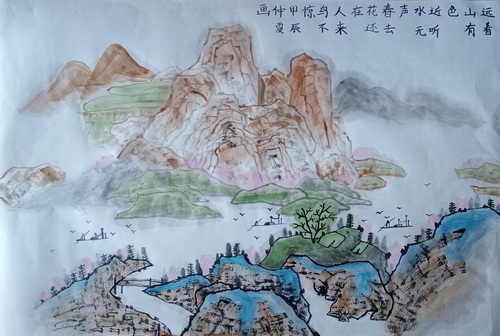 远看
山有
色
近听
水无
声
春去
花还
在
人来
鸟不
惊
甲辰
仲夏
画